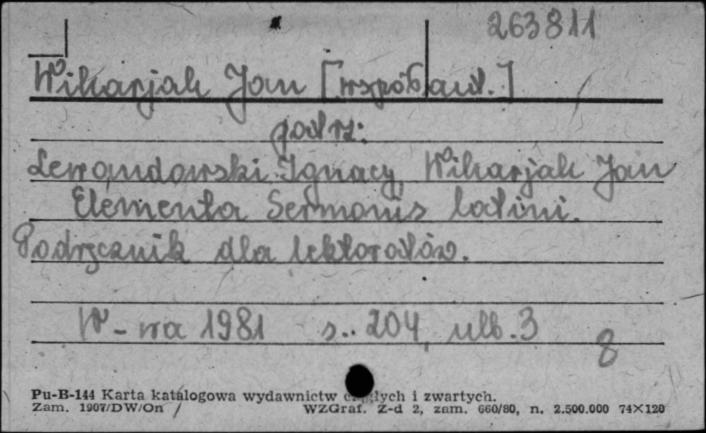 263811
Wikarjak Jan [współaut.]
patrz:
Lewandowski Ignacy, Wikarjak Jan
Elementa Sermonis latini.
Podręcznik dla lektoratów.
W-wa 1981 s. 204, nlb. 3
8
Pu-B-144 Karta katalogowa wydawnictw ciągłych i zwartych.
Zam. 1907/DW/On / WZGraf. Z-d 2, zam. 660/80, n. 2.500.000 74×120